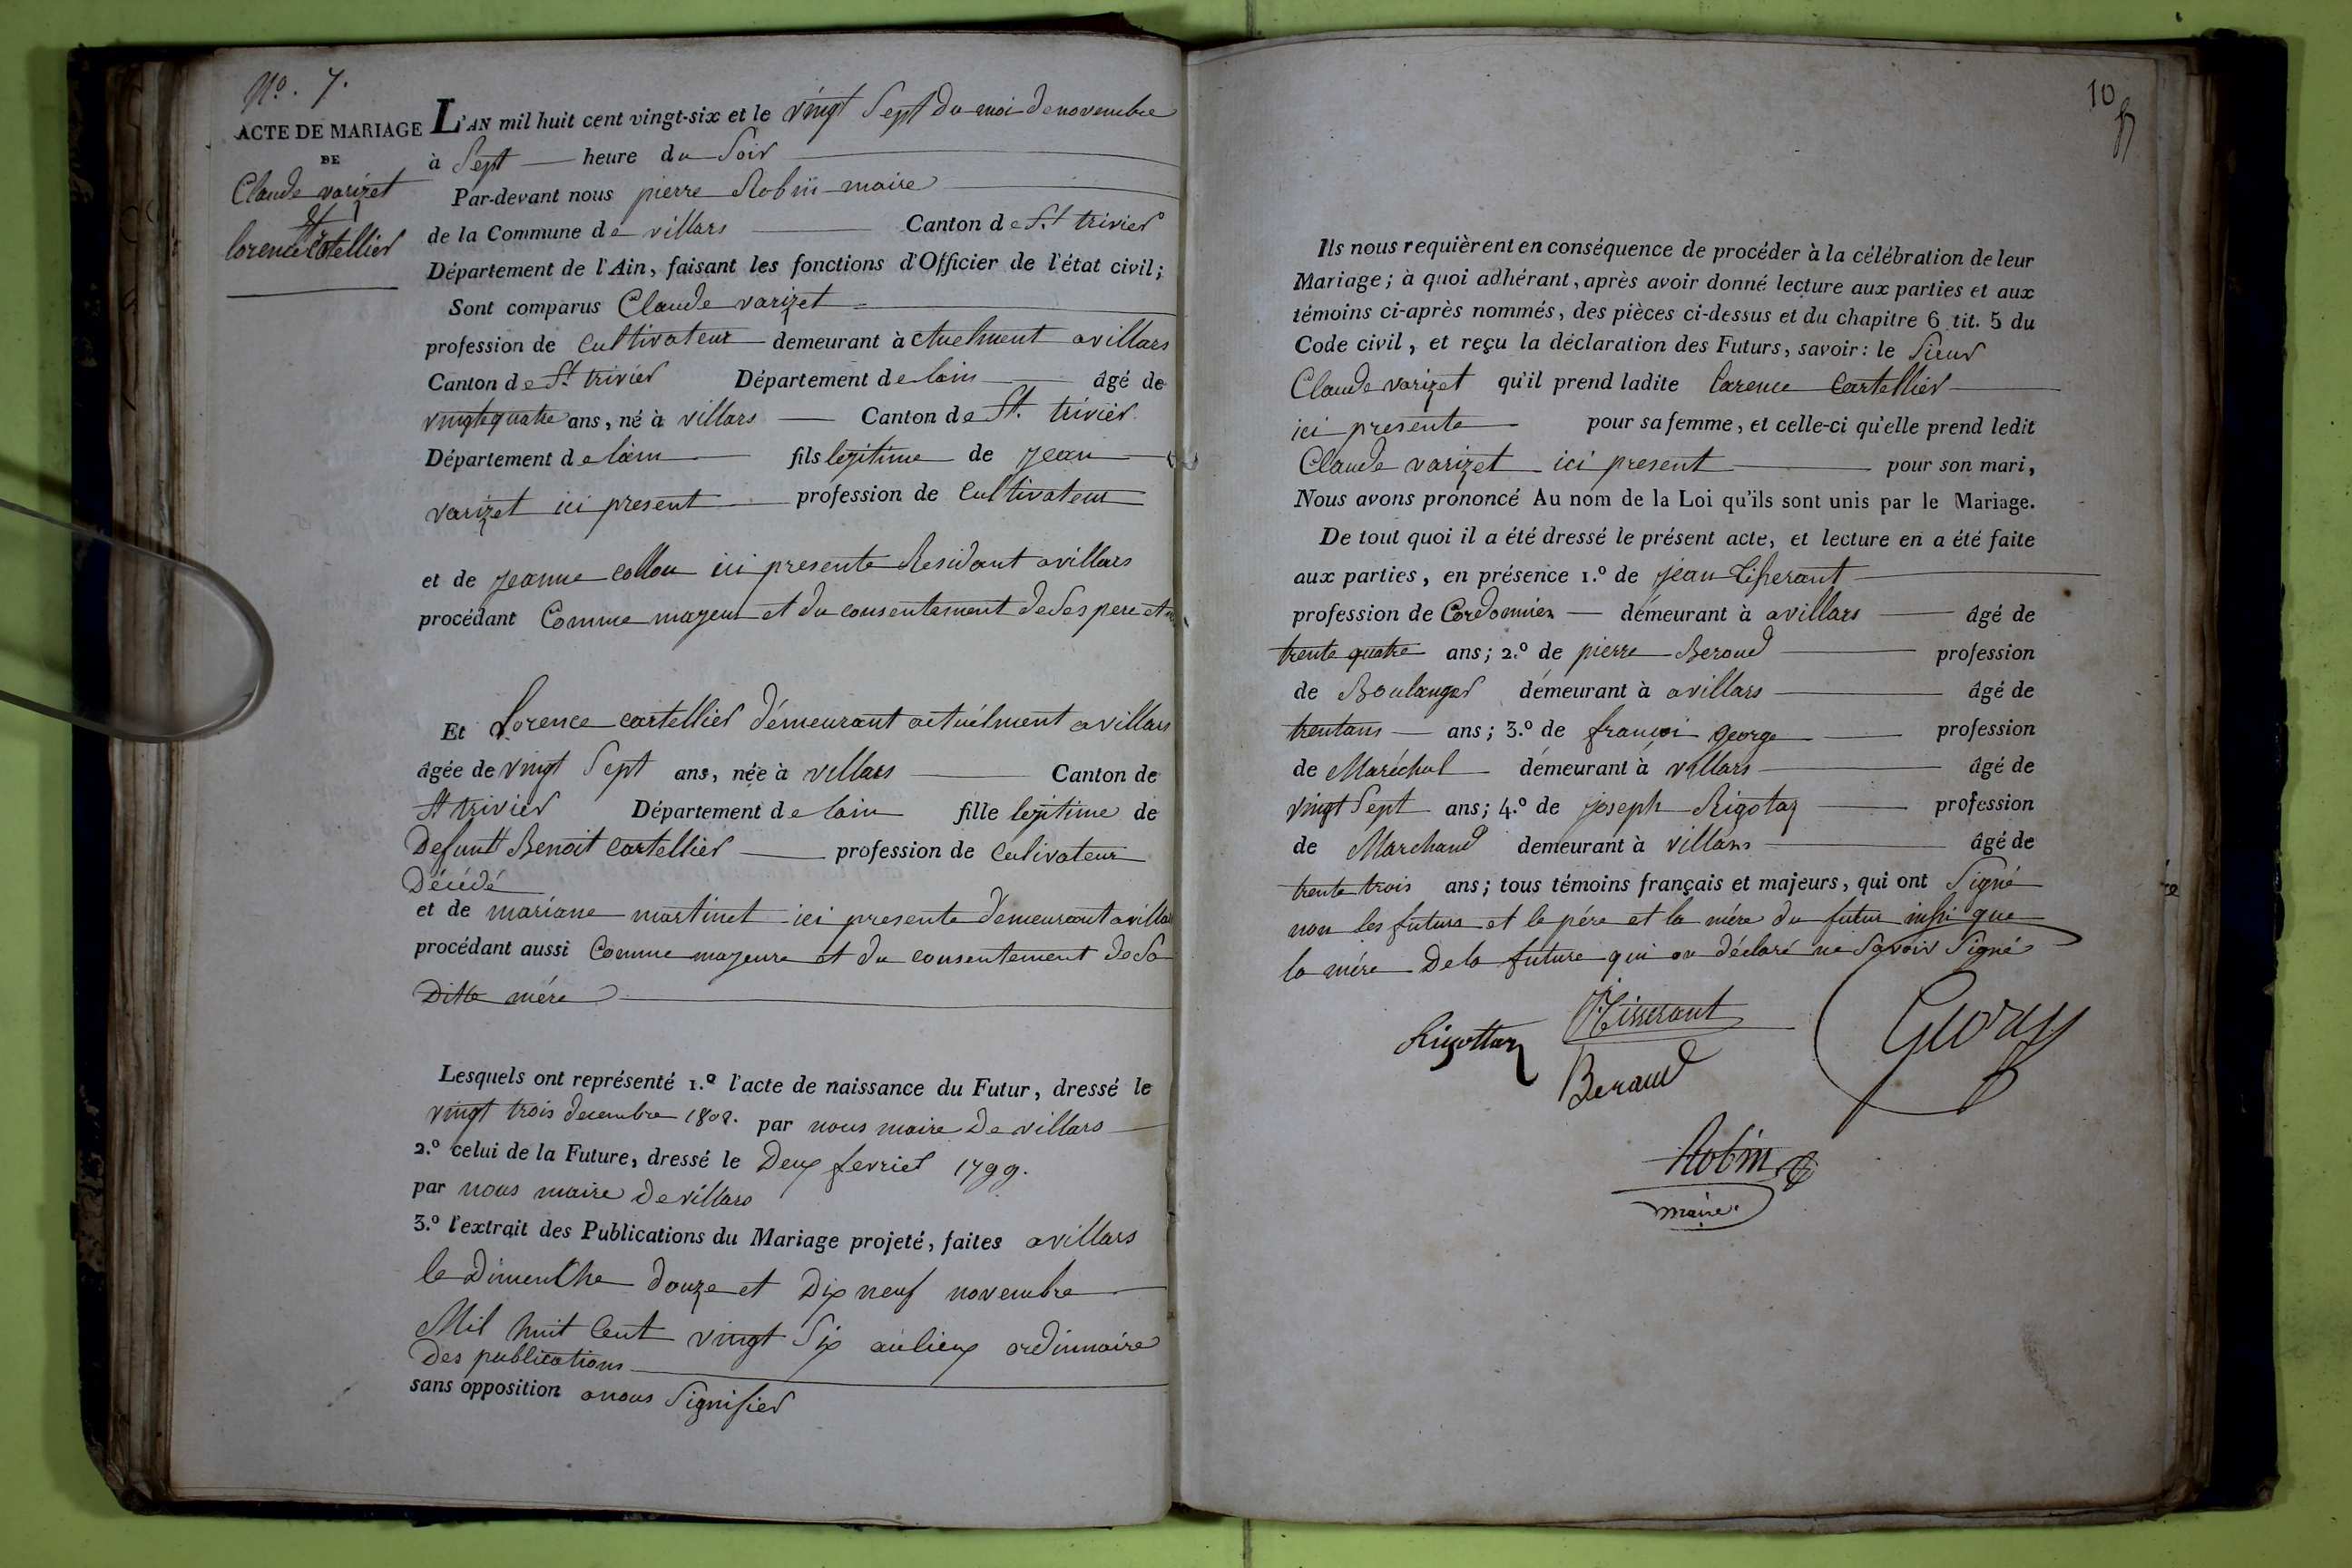 No. 7.
ACTE DE MARIAGE
DE
Claude varizet
et
lorence Cartellier
L'AN mil huit cent vingt-six et le vingt Sept du moi de novembre
à Sept heure du Soir
Par-devant nous pierre Robin maire
de la Commune de villars Canton de St. trivier
Département de l'Ain, faisant les fonctions d'Officier de l'état civil;
Sont comparus Claude varizet
profession de Cultivateur demeurant à ctuelment avillars
Canton de St. trivier Département de lain âgé de
vingtequatre ans, né à villars Canton de St. trivier
Département de lain fils legitime de jean
varizet ici present profession de Cultivateur
et de jeanne collon ici presente Residant avillars
procédant Comme majeur et du consentement de Ses pere et
Et Lorence cartellier démeurant actuélment avillars
âgée de vingt Sept ans, née à villars Canton de
St trivier Département de lain fille legitime de
Defunt Benoit Cartellier profession de Cultivateur
Décédé
et de mariane martinet ici presente demeurant avillar
procédant aussi Comme majeure et du consentement de Sa
Ditte mére
Lesquels ont représenté 1.º l'acte de naissance du Futur, dressé le
vingt trois decembre 1802. par nous maire de villars
2.º celui de la Future, dressé le Deux fevrier 1799.
par nous maire de villars
3.º l'extrait des Publications du Mariage projeté, faites avillars
le dimenche douze et Dix neuf novembre
Mil huit Cent vingt Six aulieux ordinnaire
Des publications
sans opposition anous Signifier
10
Ils nous requièrent en conséquence de procéder à la célébration de leur
Mariage; à quoi adhérant, après avoir donné lecture aux parties et aux
témoins ci-après nommés, des pièces ci-dessus et du chapitre 6 tit. 5 du
Code civil, et reçu la déclaration des Futurs, savoir: le Sieur
Claude varizet qu'il prend ladite Lorence Cartellier
ici presente pour sa femme, et celle-ci qu'elle prend ledit
Claude varizet ici present pour son mari,
Nous avons prononcé Au nom de la Loi qu'ils sont unis par le Mariage.
De tout quoi il a été dressé le présent acte, et lecture en a été faite
aux parties, en présence 1.º de jean Tisserant
profession de Cordonnier demeurant à avillars âgé de
trente quatre ans; 2.º de pierre Beroud profession
de Boulanger demeurant à avillars âgé de
trentans ans; 3.º de françoi george profession
de Maréchal demeurant à villars âgé de
vingt Sept ans; 4.º de joseph Rigotaz profession
de Marchand demeurant à villars âgé de
trente trois ans; tous témoins français et majeurs, qui ont Signé
non les futurs et le pére et la mére du futur inssi que
la mére De la future qui on déclaré ne Savoir Signé
Rigottaz
Tisserant
Beraud
Robin
maire